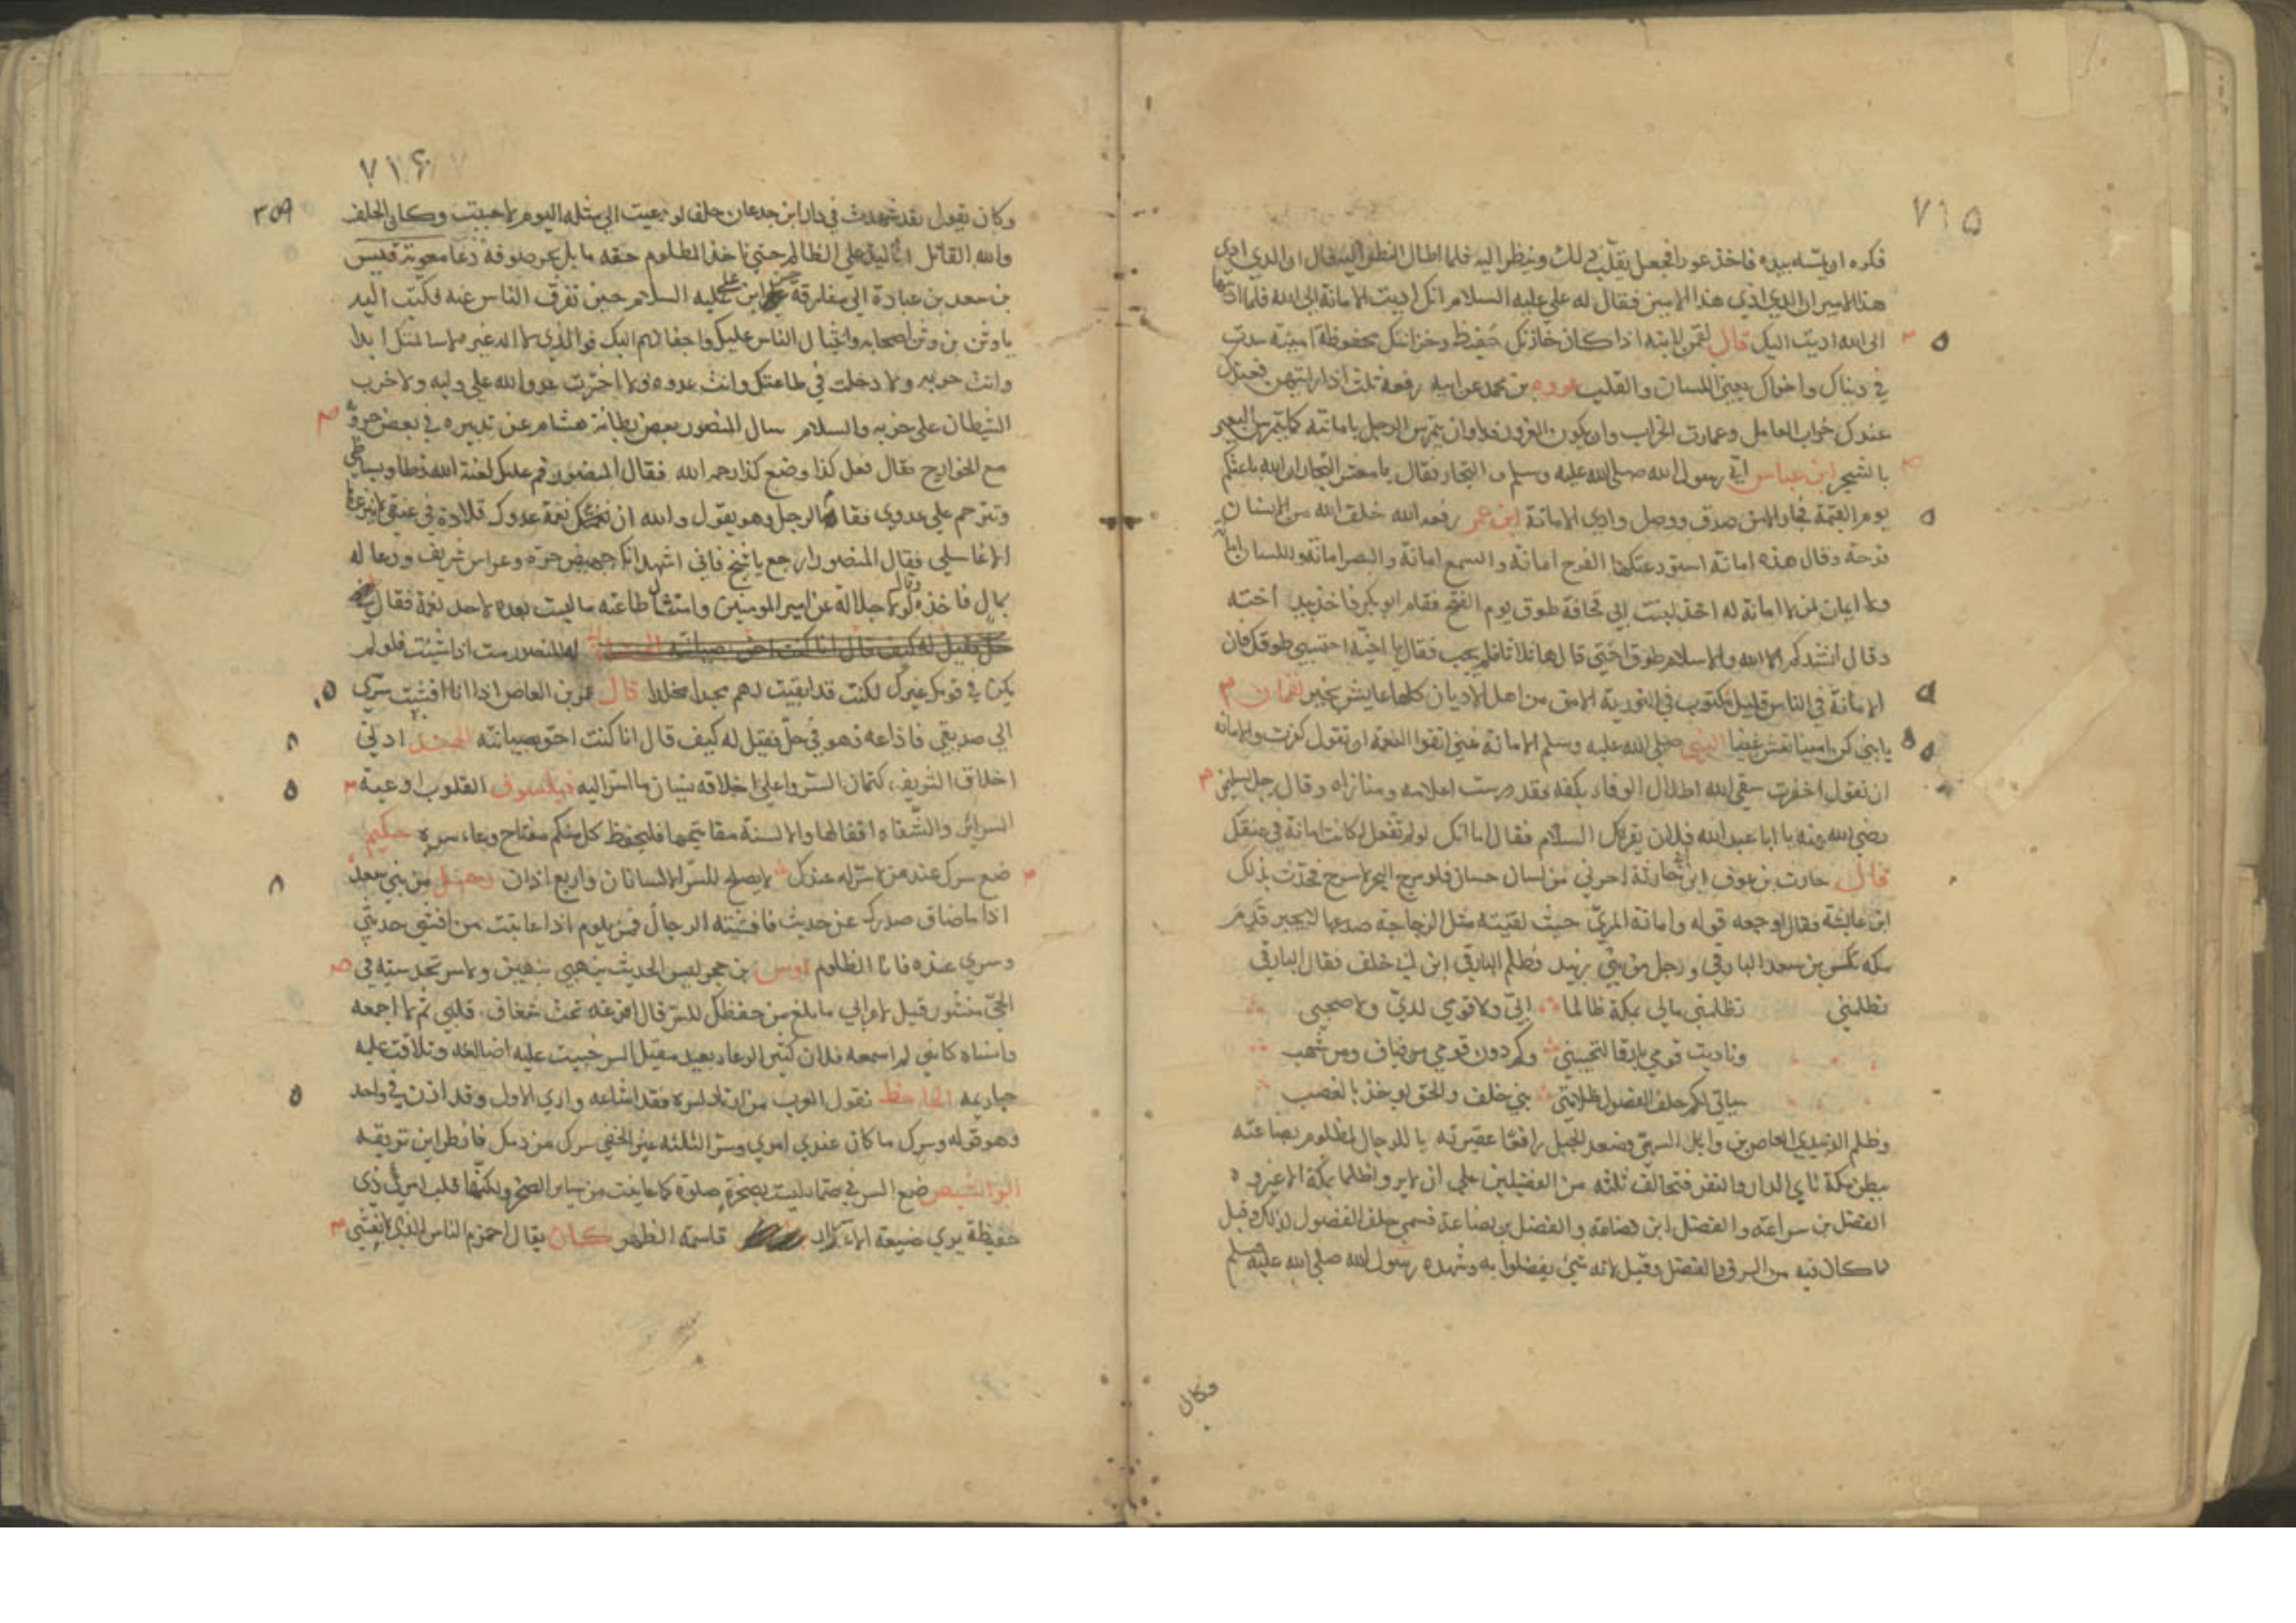 ٧١٥
فكره ان يمسه بيده فاخذ عودا فجعل يقلب ذلك وينظر اليه فلما اطال النظر اليه قال ان الذي ادى
هذا لامير ان الذي ادي هذا لامين فقال له علي عليه السلام انك اديت الامانة الى الله فلما اديتها
الى الله اديت اليك قال لقمن لابنه اذا كان خازنك حفيظا وخزانتك محفوظة امينة سدت
في دنياك واخراك يعني اللسان والقلب عروه بن محمد عن ابيه رفعه ثلث اذا رايتهن فعندك
عندك خراب العامل وعمارة الخراب وان يكون الغزو فدا وان يتمرس الرجل بامانته كما يتمرس البعير
بالشجر ابن عباس اتي رسول الله صلى الله عليه وسلم التجار فقال يا معشر التجار ان الله باعثكم
يوم القيمة فجارا الا من صدق ووصل وادي الامانة ابن عمر رفعه الله خلق الله من الانسان
فرجه وقال هذه امانة استودعتكها الفرج امانة والسمع امانة والبصر امانة واللسان امانة
ولا ايمان لمن لا امانة له اخذ لبنت ابي قحافة طوق يوم الفتح فقام ابو بكر فاخذ بيد اخته
وقال انشدكم الله والاسلام طوق اختي قالها ثلاثا فلم يجب فقال يا اخية احتسبي طوقك فان
الامانة في الناس قليل مكتوب في التورية الامن من اهل الاديان كلها عايش بخير لقمان
يا بني كن امينا تعش غنيا النبي صلى الله عليه وسلم الامانة غني اتقوا النعمة ان تقول كفرت والامانة
ان تقول اخفرت سقى الله اطلال الوفاء بكفه فقد درست اعلامه ومنازله وقال رجل لسلمن
رضي الله عنه يا ابا عبد الله فلان يقرئك السلام فقال اما انك لو لم تفعل لكانت امانة في عنقك
قال حارث بن عوف ابن حارثة اجرني من لسان حسان فلو مزج البحر لامتزج فحدثت بذلك
ابن عايشة فقال اوجعه قوله وامانة المري حيث لقيته مثل الزجاجة صدعها لا يجبر قدم
مكه بن سعد البارقي ورجل من بني زبيد فظلم البارقي ابن ابي خلف فقال البارقي
تظلمني تظلمني مالي بمكة ظالما ابي ولا قومي لدي ولا صحبي
وناديت قومي بارقا لتجيبني وكم دون قومي من فياف ومن شهب
سياتي لكم حلف الفضول ظلامتي بني خلف والحق يوخذ بالغصب
وظلم الزبيدي العاص بن وايل السهمي فصعد الجبل رافعا عقيرته يا للرجال لمظلوم بضاعته
ببطن مكة نائي الدار والنفر فتحالف ثلثه من الفضيلين على ان لا يروا ظلما بمكة الا غيروه
الفضل بن شراعه والفضل ابن قضاعه والفضل بن بضاعة فسمي حلف الفضول لذلك وقيل
لما كان فيه من الشرف والفضل وقيل لانه شيئ تفضلوا به وشهده رسول الله صلى الله عليه وسلم
وكان
٧١٦
٣٥٩
وكان يقول لقد شهدت في دار ابن جدعان حلفا لو دعيت الى مثله اليوم لاجبت وكان الحلف
والله القائل انا ليد على الظالم حتى ناخذ المظلوم حقه ما بل بحر صوفه دعا معوية قيس
بن سعد بن عبادة الى مفارقة علي ابن عليه السلام حين تفرق الناس عنه فكتب اليه
يا وثن بن وثن اصحابه واقبال الناس عليك واجفالهم اليك فوالذي لا اله غيره لا سالمتك ابدا
وانت حربه ولا دخلت في طاعتك وانت عدوه ولا اخترت عدو الله على وليه ولا حزب
الشيطان على حزبه والسلام سال المنصور بعض بطانة هشام عن تدبيره في بعض حروبه
مع الخوارج فقال فعل كذا وضع كذا رحمه الله فقال المنصور قم عليك لعنة الله تطا بساطي
وتترحم على عدوي فقام الرجل وهو يقول والله ان نعمة عدوك قلادة في عنقي لا ينزعها
الا غاسلي فقال المنصور ارجع يا شيخ فاني اشهد انك نهيض حرة وغراس شريف ودعا له
بمال فاخذه وقال لولا جلالة عز امير المومنين وامتثال طاعته ما لبست بعده لاحد نعمة فقال
له المنصور مت اذا شئت فلو لم
يكن في قومك غيرك لكنت قد ابقيت لهم مجدا مخلدا قال عمرو بن العاص اذا انا افشيت سري
الى صديقي فاذاعه فهو في حل فقيل له كيف قال انا كنت احق بصيانته ادني
اخلاق الشريف كتمان السر واعلى اخلاقه نسيان ما اسر اليه فيلسوف القلوب اوعية
السرائر والشفاه اقفالها والالسنة مفاتيحها فليحفظ كل منكم مفتاح وعاء سره حكيم
ضع سرك عند من لا سر له عندك لا يصلح للسر الا لسانان واربع اذان رجل من بني سعد
اذا ما ضاق صدرك عن حديث فافشته الرجال فمن تلوم اذا عاتبت من افشى حديثي
وسري عنده فانا الظلوم اوس بن حجر ليس الحديث بنهبي بينهن ولا سر تحدثنيه في
الحي منشور قيل لاعرابي ما بلغ من حفظك للسر قال افرغه تحت شغاف قلبي ثم لا اجمعه
وانساه كاني لم اسمعه فلان كثير الوعاد بعيد مقيل السر
الجاحظ تقول العرب من ارتاد لسره فقد اشاعه وادي الاول وقد اذن في واحد
وهو قوله وسرك ما كان عندي امري وسر الثلثه غير الخفي
ابو الشيص ضع السر في صماء ليست بصخرة صلود كما عاينت من ساير الصخر ولكنها قلب امرئ ذي
حفيظة يري ضيعة الاسرار قاسمة الظهر كان يقال احزم الناس الذي لا يفشي